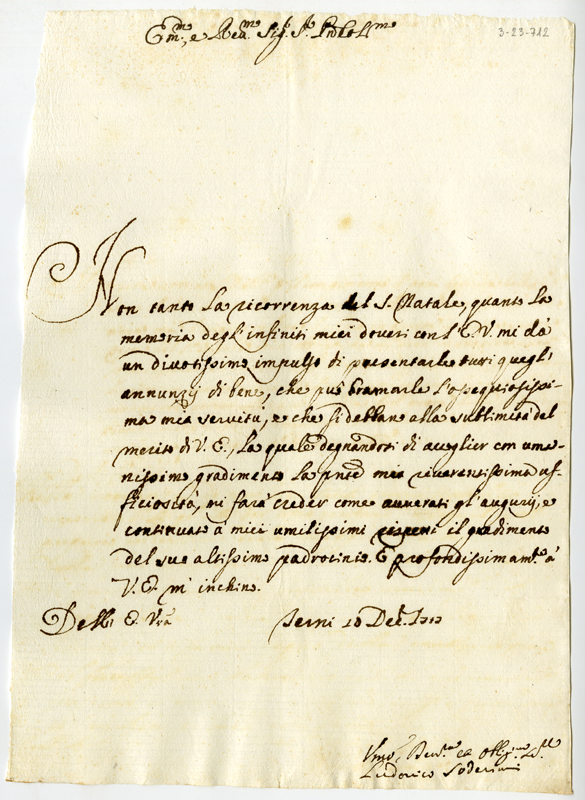 3-23-712
Em.mo e Rev.mo Sig.r S.r Prōn Col.mo
Non tanto la ricorrenza del S. Natale, quanto la
memoria degl'infiniti miei doveri con l'E.V. mi dà
un divotissimo impulso di presentarle tutti quegl'
annunzij di bene, che può bramarle l'ossequiosissi-
ma mia servitù, e che si debbano alla sublimità del
merito di V. E., la quale degnandosi di accoglier con uma-
nissimo gradimento la pnte mia riverentissima uf-
ficiosità, mi farà creder come avverati gl'augurij, e
continuato à miei umilissimi rispetti il gradimento
del suo altissimo padrocinio. E profondissimam.te à
V. E. m'inchino.
Dell' E. Vrā Terni 10 Dec.
Umo. Dev.mo ed Obl.mo
Ludovico Soderini